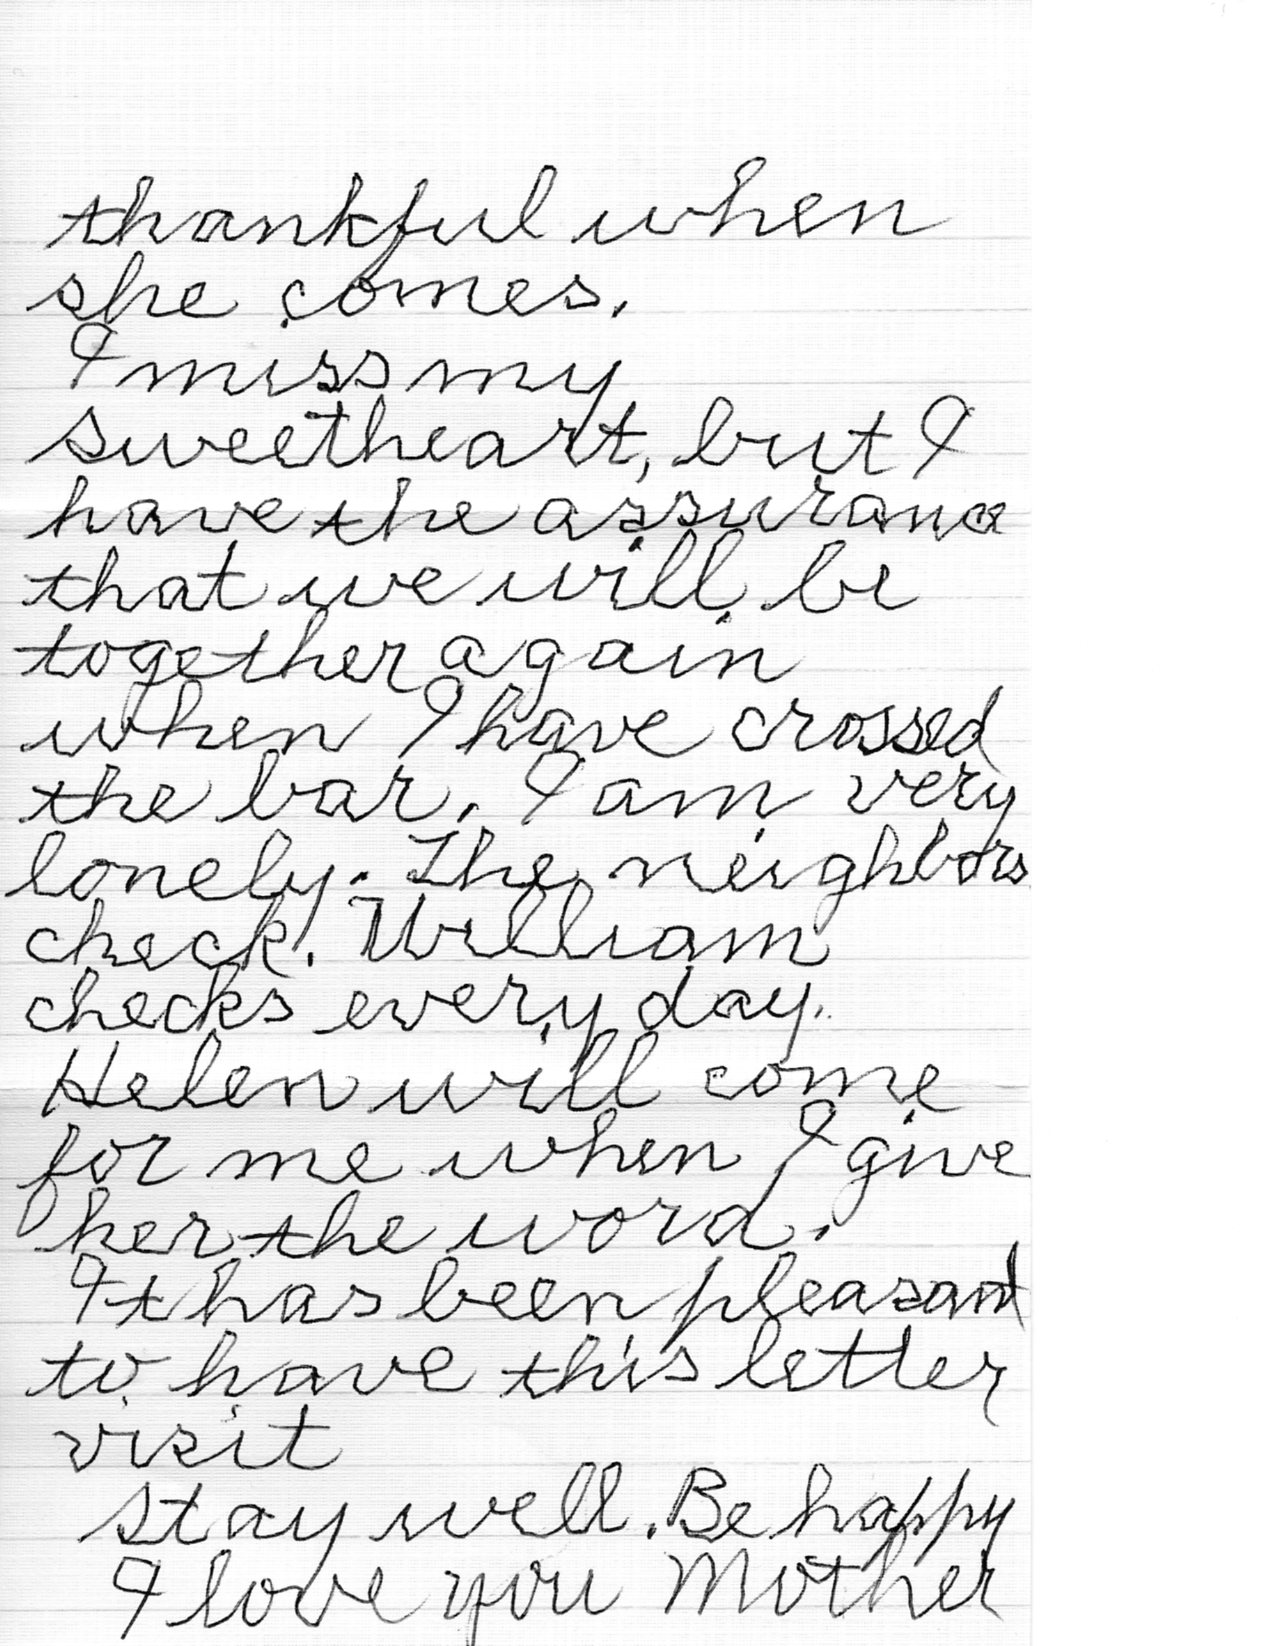 thankful when
she comes.
I miss my
sweetheart, but I
have the assurance
that we will be
together again
when I have crossed
the bar. I am very
lonely. The neighbors
check. William
checks every day.
Helen will come
for me when I give
her the word.
It has been pleasant
to have this letter
visit
stay well. Be happy
I love you Mother